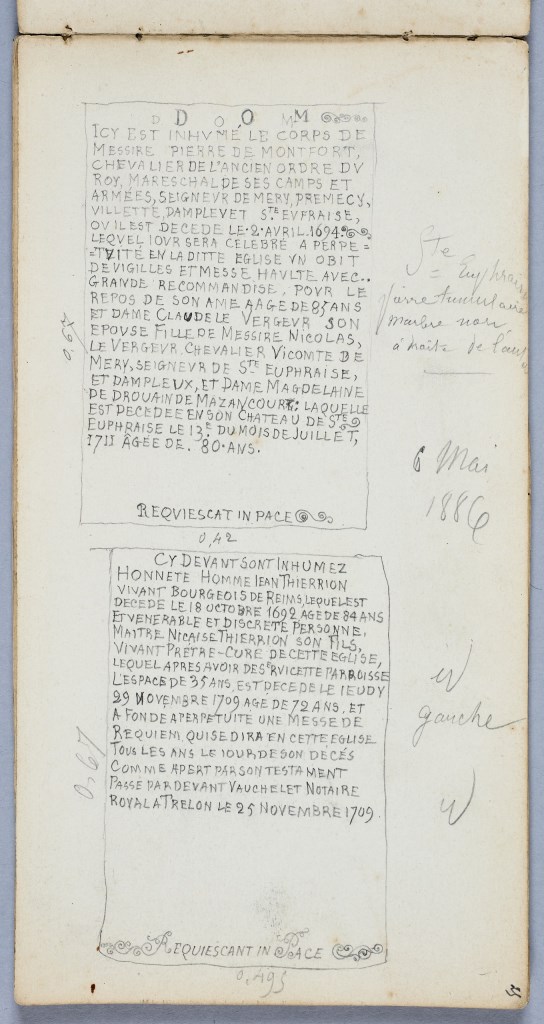 D O M
ICY EST INHVMÉ LE CORPS DE
MESSIRE PIERRE DE MONTFORT,
CHEVALIER DE L'ANCIEN ORDRE DV
ROY, MARESCHAL DE SES CAMPS ET
ARMÉES, SEIGNEVR DE MERY, PREMECY,
VILLETTE, DAMPLEVET STE EVFRAISE,
OV IL EST DECEDE LE 2 AVRIL 1694.
LEQVEL IOVR SERA CELEBRÉ A PERPE=
=TVITÉ EN LA DITTE EGLISE VN OBIT
DE VIGILLES ET MESSE HAVLTE AVEC..
GRANDE RECOMMANDISE, POVR LE
REPOS DE SON AME AAGE DE 85 ANS
ET DAME CLAUDE LE VERGEVR SON
EPOVSE FILLE DE MESSIRE NICOLAS,
LE VERGEVR CHEVALIER VICOMTE DE
MERY, SEIGNEVR DE STE EUPHRAISE,
ET DAMPLEUX, ET DAME MAGDELAINE
DE DROUAIN DE MAZANCOURT: LAQUELLE
EST DECEDÉE EN SON CHATEAU DE STE
EUPHRAISE LE 13E DU MOIS DE JUILLET,
1711 ÂGÉE DE. 80. ANS.
REQVIESCAT IN PACE
0,42
Ste Euphraise
pierre tumulaire
marbre noir
à droite de l'autel
6 Mai
1886
CY DEVANT SONT INHUMEZ
HONNETE HOMME IEAN THIERRION
VIVANT BOURGEOIS DE REIMS, LEQUEL EST
DECEDÉ LE 18 OCTOBRE 1692 AGE DE 84 ANS
ET VENERABLE ET DISCRETE PERSONNE,
MAITRE NICAISE THIERRION SON FILS,
VIVANT PRETRE-CURE DE CETTE EGLISE,
LEQUEL APRES AVOIR DESERVI CETTE PARROISSE
L'ESPACE DE 35 ANS, EST DECEDE LE IEUDY
29 NOVEMBRE 1709 AGE DE 72 ANS. ET
A FONDE A PERPETUITE UNE MESSE DE
REQUIEM, QUI SE DIRA EN CETTE EGLISE
TOUS LES ANS LE IOUR DE SON DÉCÉS
COMME APERT PAR SON TESTAMENT
PASSE PAR DEVANT VAUCHELET NOTAIRE
ROYAL A TRELON LE 25 NOVEMBRE 1709.
REQUIESCANT IN PACE
0,67
0,495
gauche